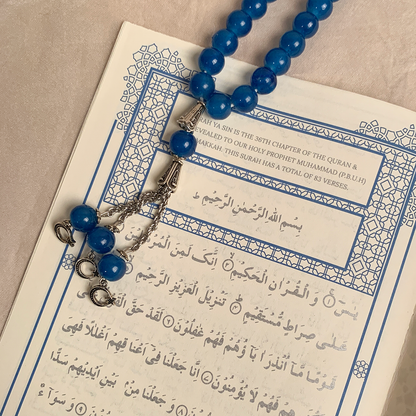 RAH YA SIN IS THE 36TH CHAPTER OF THE QURAN &
EVEALED TO OUR HOLY PROPHET MUHAMMAD (P.B.U.H)
MAKKAH. THIS SURAH HAS A TOTAL OF 83 VERSES.
بِسْمِ اللهِ الرَّحْمٰنِ الرَّحِيْمِ
يٰسٓ ﴿١﴾ وَالْقُرْاٰنِ الْحَكِيْمِ ﴿٢﴾ اِنَّكَ لَمِنَ الْمُرْسَلِيْنَ
عَلٰى صِرَاطٍ مُّسْتَقِيْمٍ ﴿٤﴾ تَنْزِيْلَ الْعَزِيْزِ الرَّحِيْمِ
قَوْمًا مَّآ اُنْذِرَ اٰبَآؤُهُمْ فَهُمْ غٰفِلُوْنَ ﴿٦﴾ لَقَدْ حَقَّ
فَهُمْ لَا يُؤْمِنُوْنَ ﴿٧﴾ اِنَّا جَعَلْنَا فِيْٓ اَعْنَاقِهِمْ اَغْلٰلًا فَهِيَ
وَجَعَلْنَا مِنْۢ بَيْنِ اَيْدِيْهِمْ سَدًّا
وَسَوَآءٌ